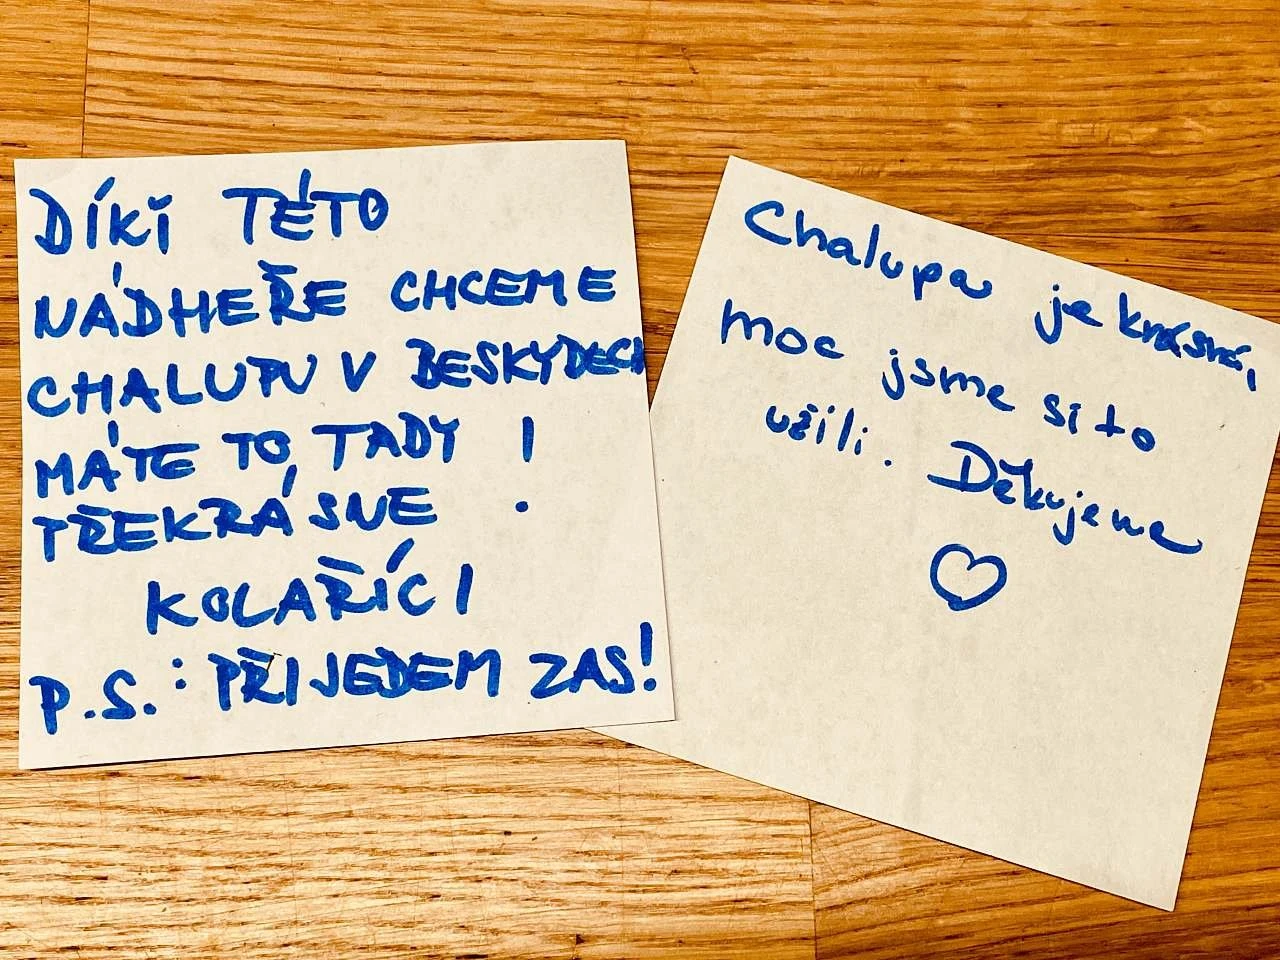 DÍKI TÉTO
NÁDHEŘE CHCEME
CHALUPU V BESKYDECH
MÁTE TO, TADY !
PŘEKRÁSNE
KOLAŘÍCI
P.S.: PŘIJEDEM ZAS!
Chalupa je krásná,
moc jsme si to
užili. Děkujeme
♡